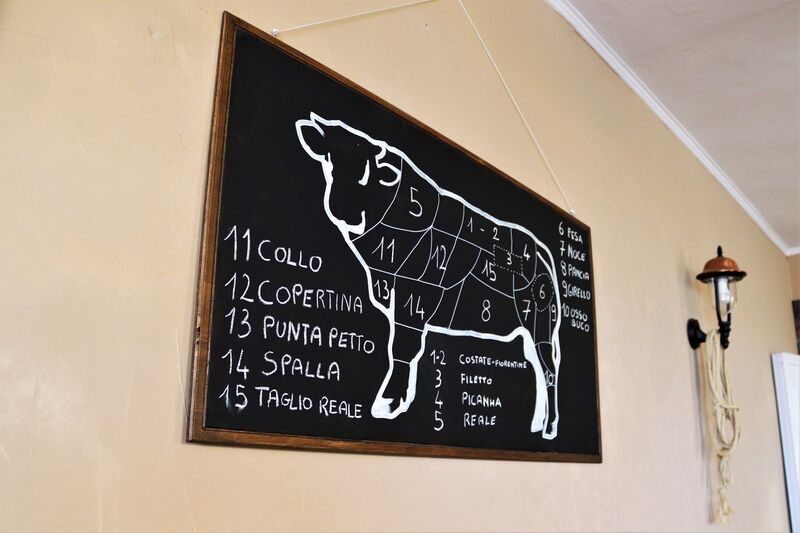 5
1 - 2
4
11
12
15
3
13
14
8
7
6
9
10
11 COLLO
12 COPERTINA
13 PUNTA PETTO
14 SPALLA
15 TAGLIO REALE
1-2 COSTATE-FIORENTINE
3 FILETTO
4 PICANHA
5 REALE
6 FESA
7 NOCE
8 PANCIA
9 GIRELLO
10 OSSO
BUCO